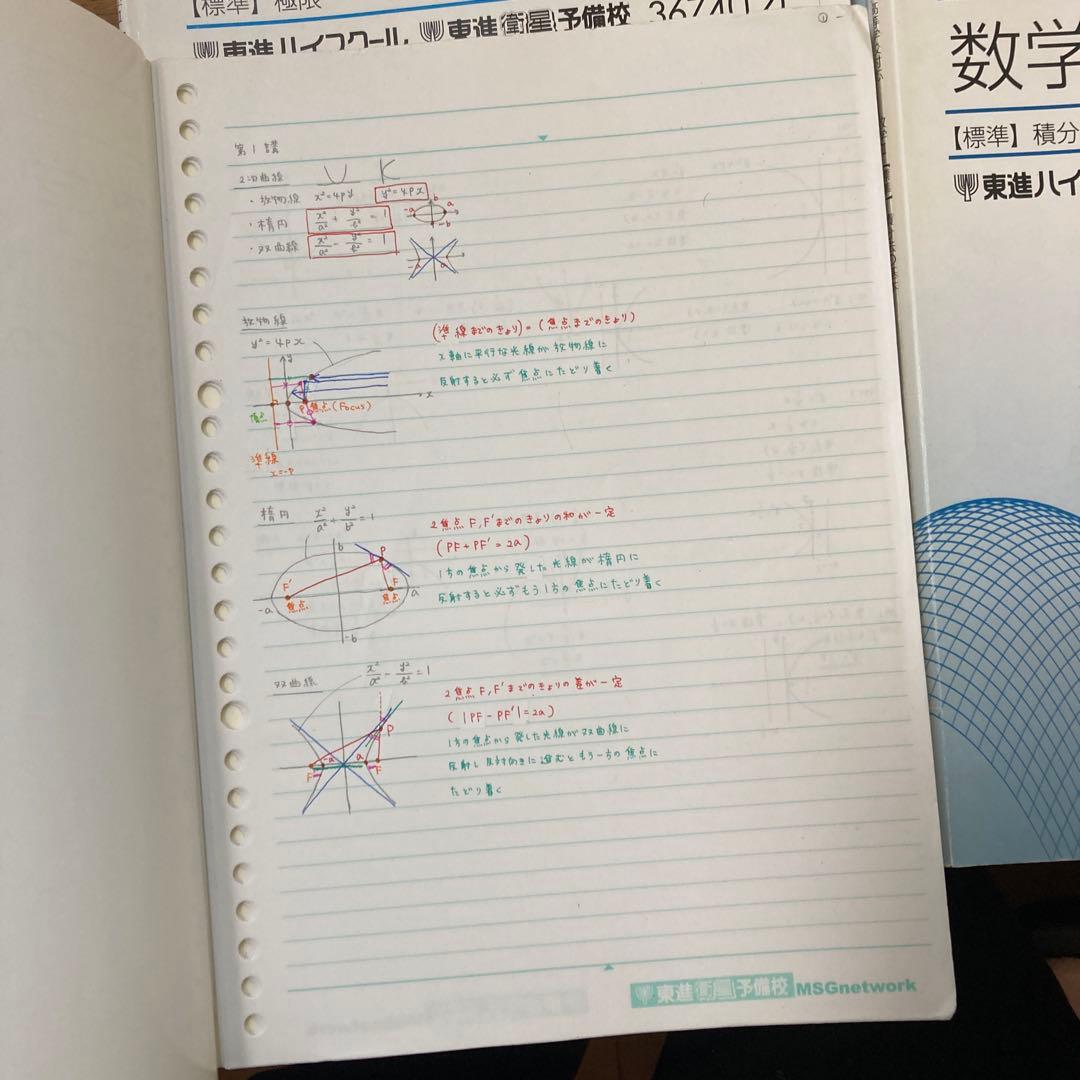 【標準】極限
東進ハイスクール 東進衛星予備校
数学
【標準】積分
東進ハイ
①
第1講
2次曲線
・放物線 x²=4py y²=4px
・楕円 x²/a² + y²/b² = 1
a
-a
b
-b
・双曲線 x²/a² - y²/b² = 1
-a a
放物線
y²=4px
(準線までのきょり)=(焦点までのきょり)
x軸に平行な光線が放物線に
反射すると必ず焦点にたどり着く
y
x
頂点
P 焦点(Focus)
準線
x=-p
楕円 x²/a² + y²/b² = 1
2焦点F,F'までのきょりの和が一定
(PF+PF'=2a)
1方の焦点から発した光線が楕円に
反射すると必ずもう1方の焦点にたどり着く
b
P
F'
焦点
F
焦点
-a
a
-b
双曲線 x²/a² - y²/b² = 1
2焦点F,F'までのきょりの差が一定
(|PF-PF'|=2a)
1方の焦点から発した光線が双曲線に
反射し反対向きに進むともう一方の焦点に
たどり着く
P
-a
a
F
F
東進衛星予備校 MSGnetwork